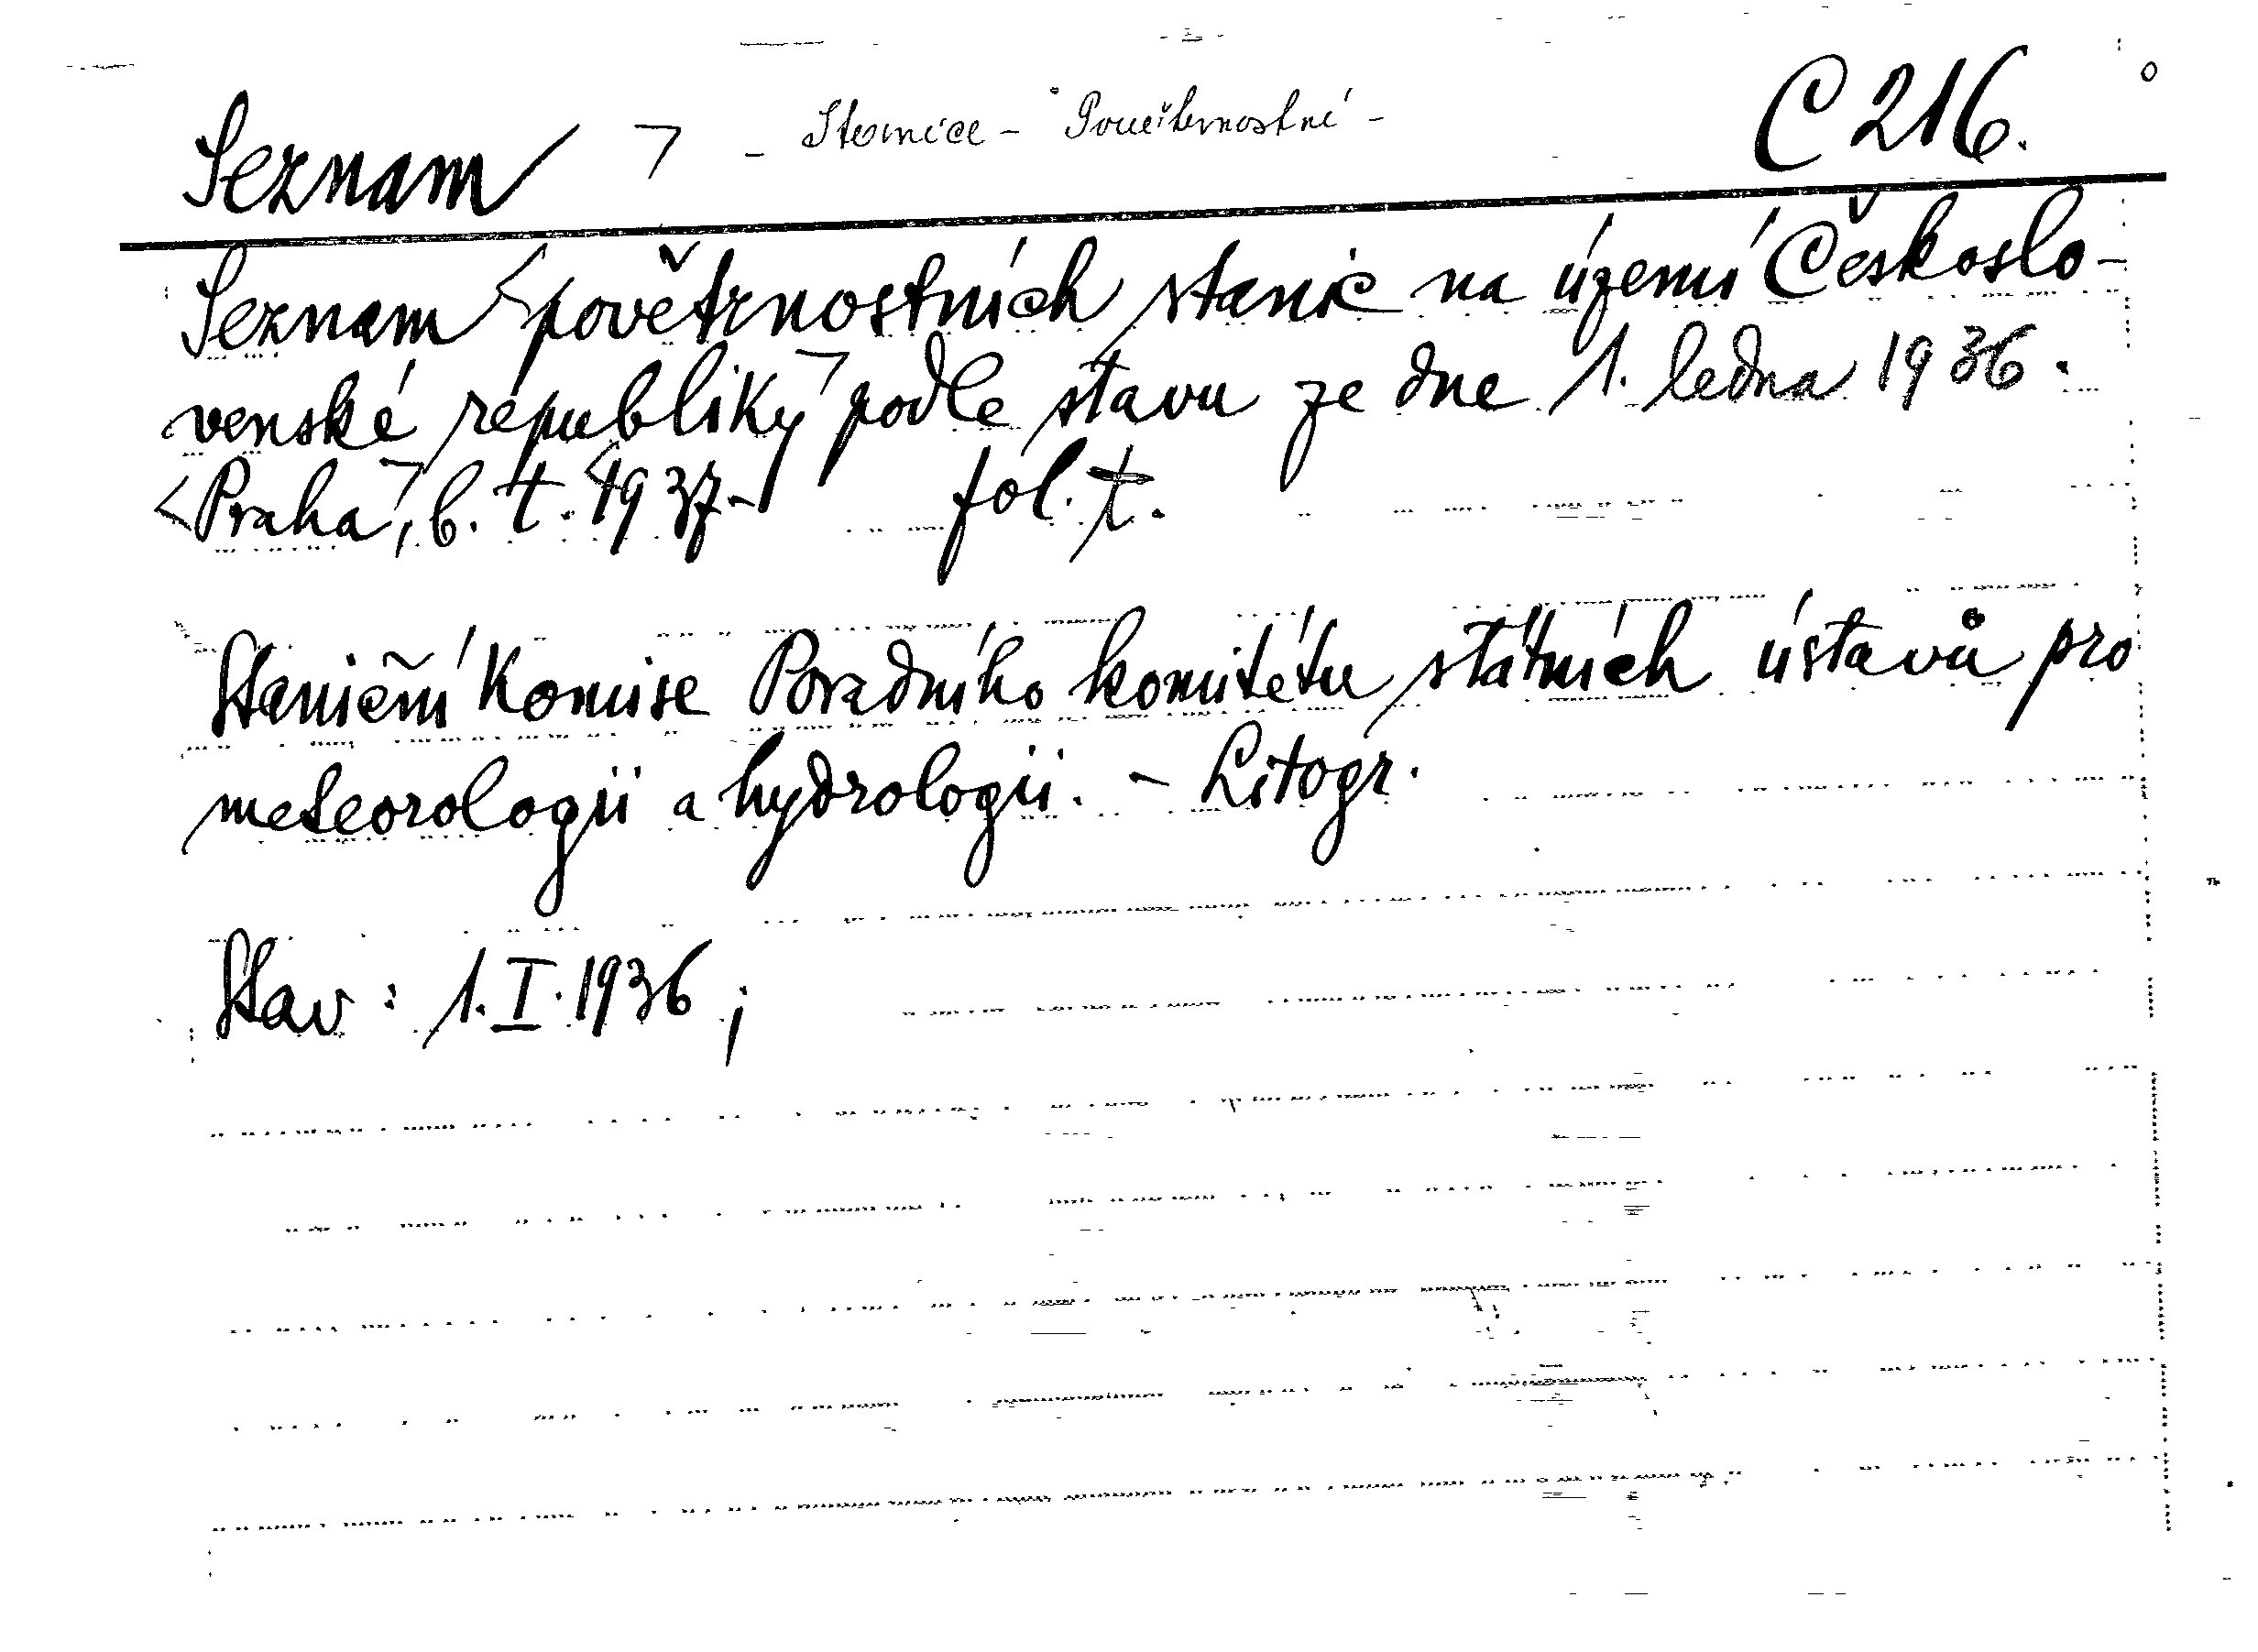 Seznam > - Stanice - Povětrnostní - C 216.
Seznam <povětrnostních stanic na území Českoslo-
venské republiky> podle stavu ze dne 1. ledna 1936.
<Praha>, b. t. <1937> fol. t.
Staniční komise Poradního komitétu státních ústavů pro
meteorologii a hydrologii. - Litogr.
Stav: 1. I. 1936;